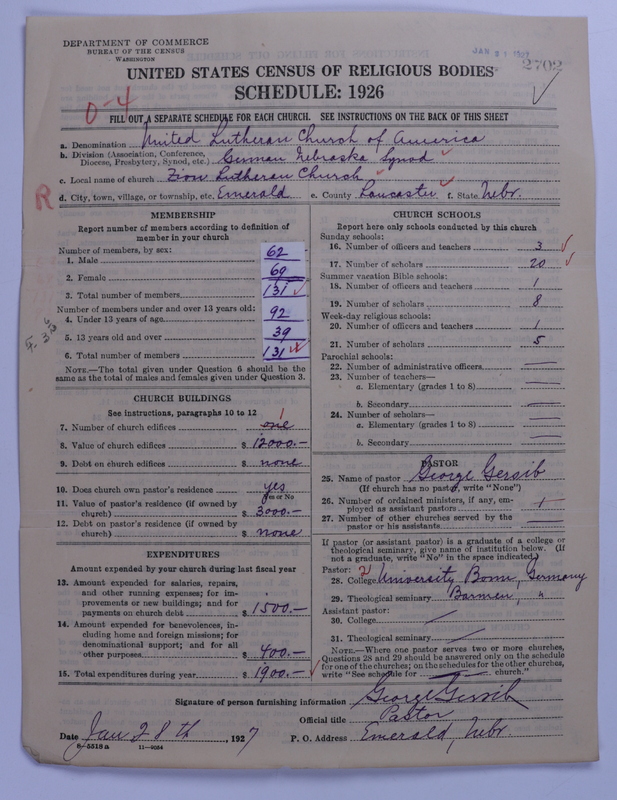 DEPARTMENT OF COMMERCE
BUREAU OF THE CENSUS
WASHINGTON
JAN 31 1927
2702
UNITED STATES CENSUS OF RELIGIOUS BODIES
SCHEDULE: 1926
0-4
FILL OUT A SEPARATE SCHEDULE FOR EACH CHURCH. SEE INSTRUCTIONS ON THE BACK OF THIS SHEET
a. Denomination United Lutheran Church of America
b. Division (Association, Conference, Diocese, Presbytery, Synod, etc.) German Nebraska Synod
c. Local name of church Zion Lutheran Church
R
d. City, town, village, or township, etc. Emerald e. County Lancaster f. State Nebr.
MEMBERSHIP
Report number of members according to definition of
member in your church
Number of members, by sex:
1. Male 62
2. Female 69
3. Total number of members 131
Number of members under and over 13 years old:
4. Under 13 years of age 92
5. 13 years old and over 39
6. Total number of members 131
NOTE.—The total given under Question 6 should be the
same as the total of males and females given under Question 3.
CHURCH BUILDINGS
See instructions, paragraphs 10 to 12
1
7. Number of church edifices one
8. Value of church edifices $ 12000.—
9. Debt on church edifices $ none
10. Does church own pastor's residence yes
Yes or No
11. Value of pastor's residence (if owned by
church) $ 3000.—
12. Debt on pastor's residence (if owned by
church) $ none
EXPENDITURES
Amount expended by your church during last fiscal year
13. Amount expended for salaries, repairs,
and other running expenses; for im-
provements or new buildings; and for
payments on church debt $ 1500.—
14. Amount expended for benevolences, in-
cluding home and foreign missions; for
denominational support; and for all
other purposes $ 400.—
15. Total expenditures during year $ 1900.—
CHURCH SCHOOLS
Report here only schools conducted by this church
Sunday schools:
16. Number of officers and teachers 3
17. Number of scholars 20
Summer vacation Bible schools:
18. Number of officers and teachers 1
19. Number of scholars 8
Week-day religious schools:
20. Number of officers and teachers 1
21. Number of scholars 5
Parochial schools:
22. Number of administrative officers —
23. Number of teachers—
a. Elementary (grades 1 to 8) —
b. Secondary —
24. Number of scholars—
a. Elementary (grades 1 to 8) —
b. Secondary —
PASTOR
25. Name of pastor George Gersib
(If church has no pastor, write "None")
26. Number of ordained ministers, if any, em-
ployed as assistant pastors
27. Number of other churches served by the
pastor or his assistants —
If pastor (or assistant pastor) is a graduate of a college or
theological seminary, give name of institution below. (If
not a graduate, write "No" in the space indicated.)
Pastor: 2
28. College University Bonn, Germany
29. Theological seminary Barmen, "
Assistant pastor:
30. College —
31. Theological seminary —
NOTE.—Where one pastor serves two or more churches,
Questions 28 and 29 should be answered only on the schedule
for one of the churches; on the schedules for the other churches,
write "See schedule for church."
Signature of person furnishing information George Gersib
Official title Pastor
Date Jan 28th, 1927 P. O. Address Emerald, Nebr.
8—5518a 11—9054